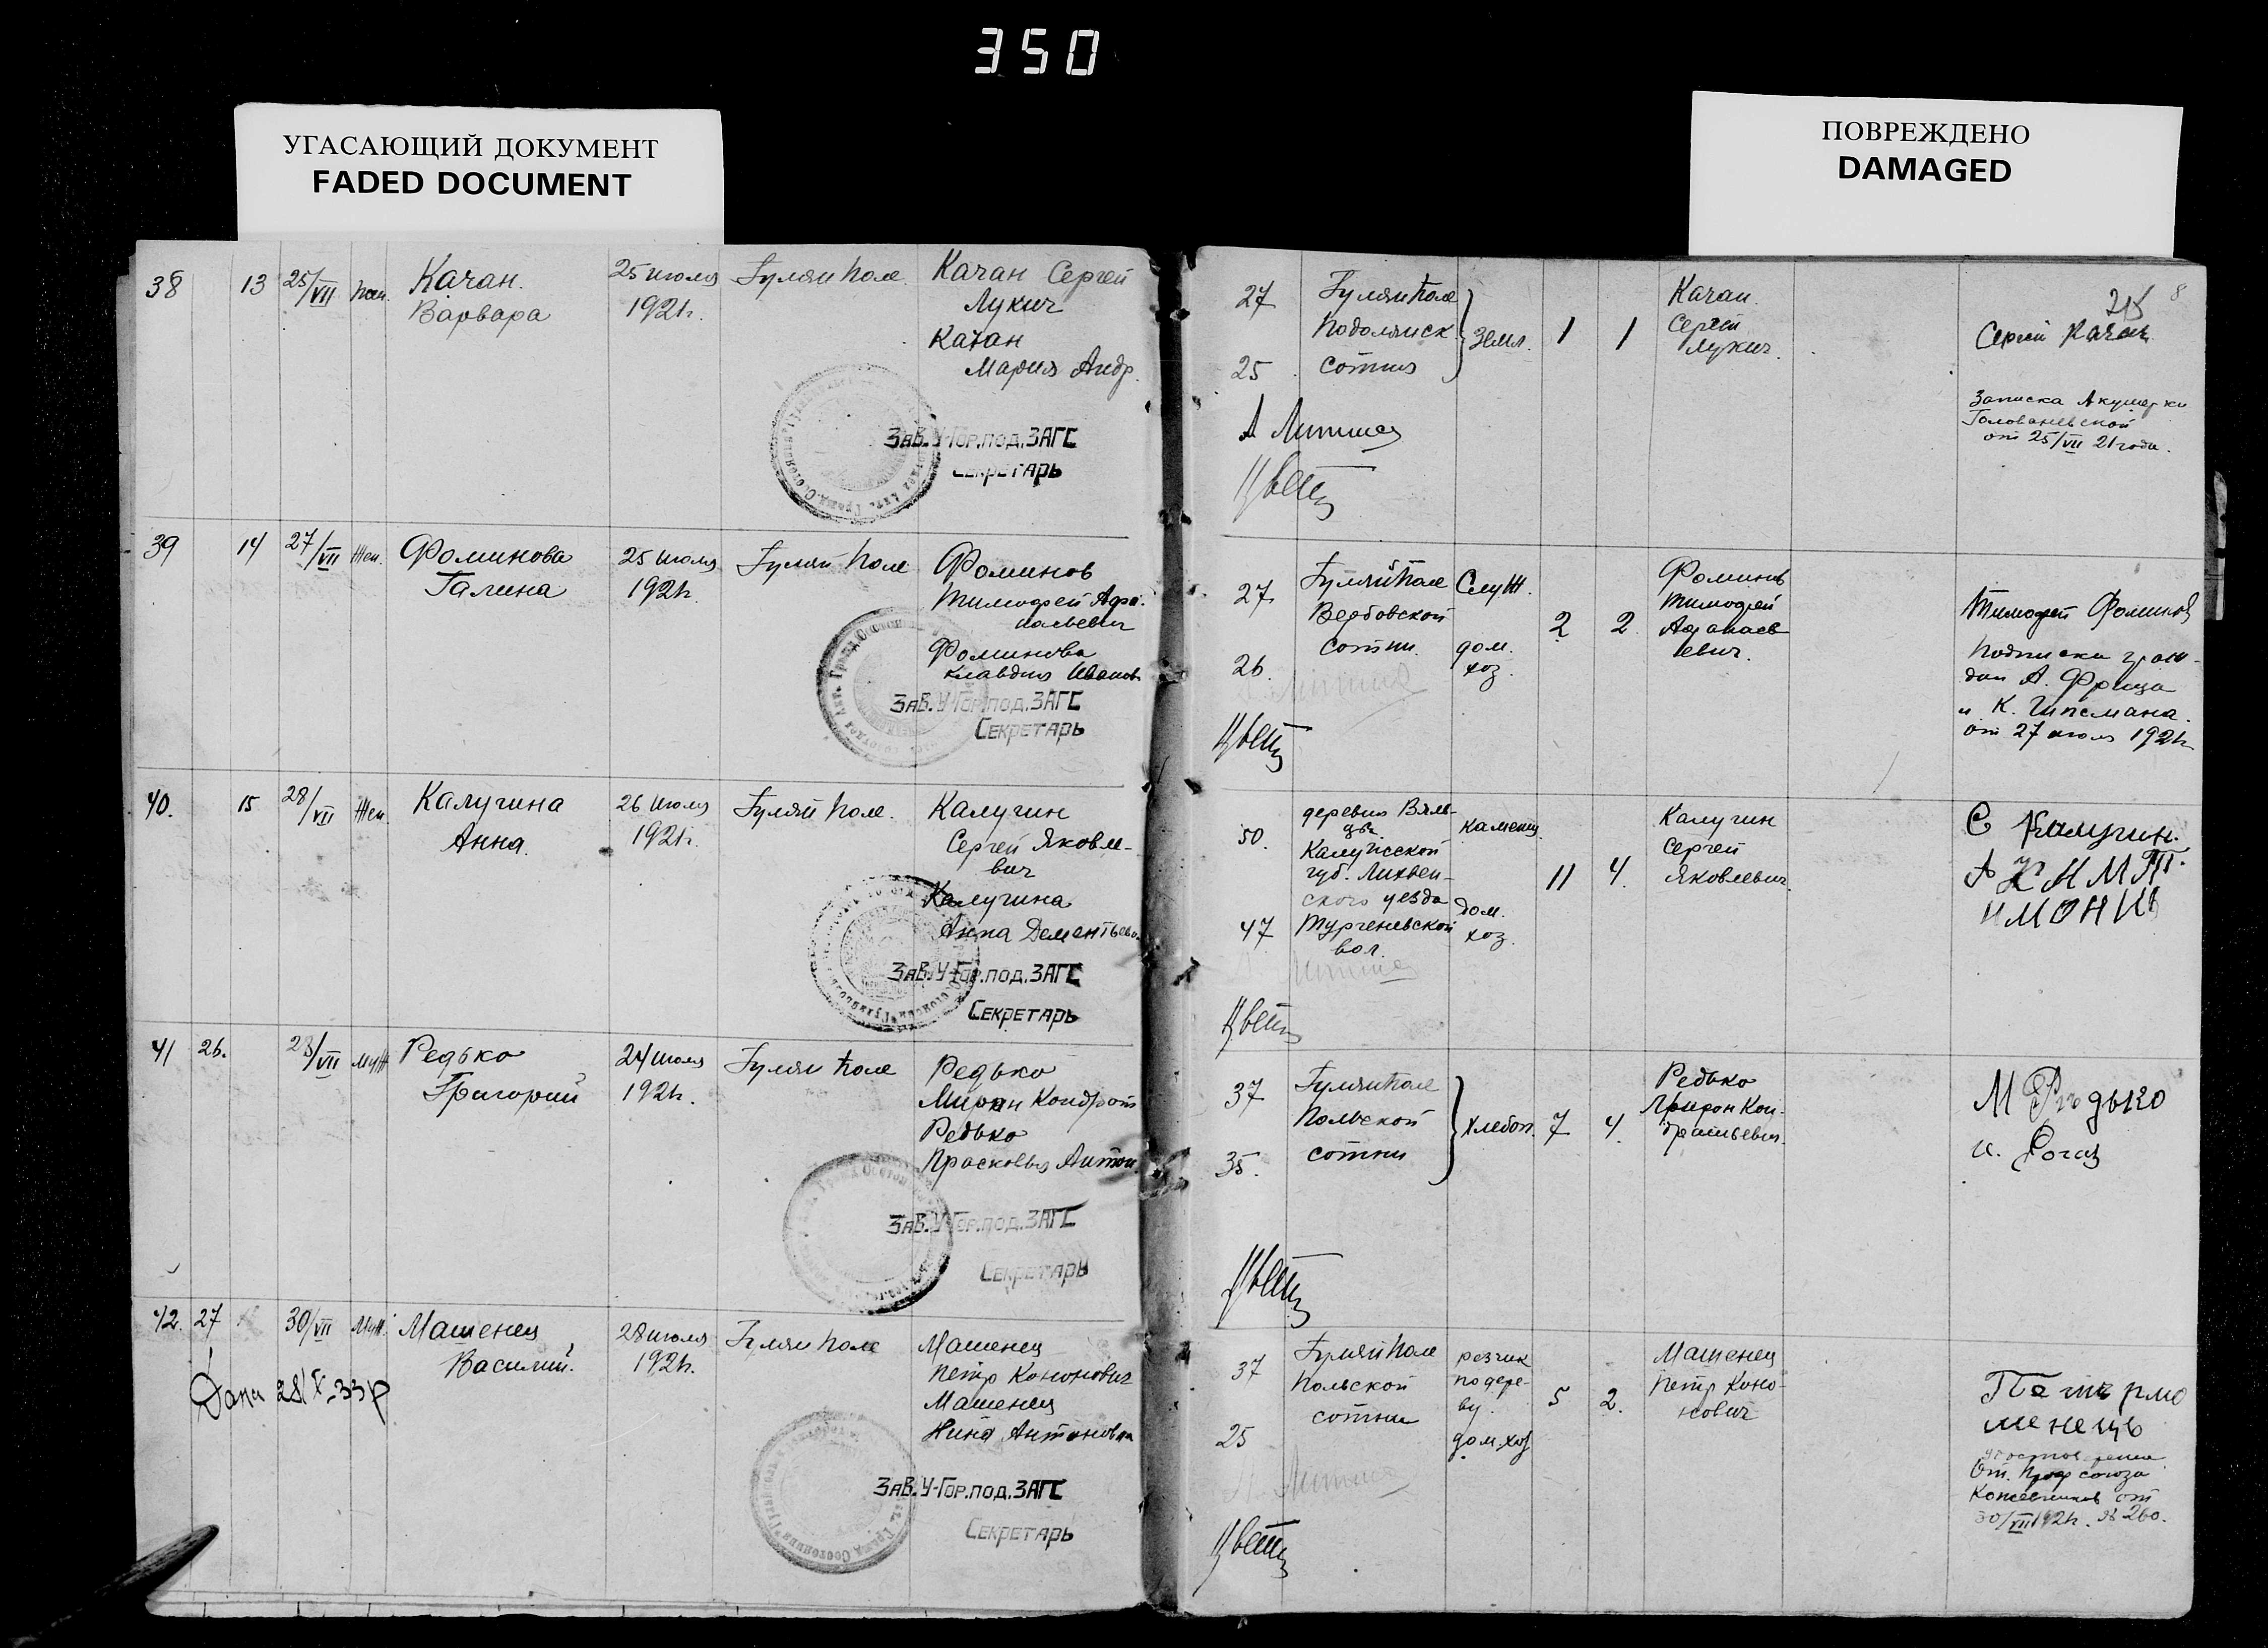 350
УГАСАЮЩИЙ ДОКУМЕНТ
FADED DOCUMENT
ПОВРЕЖДЕНО
DAMAGED
38 13 25/VII Качан 25 июля Гуляй Поле Качан Сергей
Варвара 1921г. Лукич
Качан
Мария Андр.
Зав. У-Гор.под.ЗАГС
Секретарь
39 14 27/VII Жен. Фоминова 25 июля Гуляй Поле Фоминов
Галина 1921г. Тимофей Афа-
насьевич
Фоминова
Клавдия Иванов
Зав. У-Гор.под.ЗАГС
Секретарь
40. 15 28/VII Жен. Калугина 26 июля Гуляй Поле. Калугин
Анна. 1921г. Сергей Яковле-
вич
Калугина
Анна Дементьевн
Зав. У-Гор.под.ЗАГС
Секретарь
41 26. 28/VII Муж Редько 24 июля Гуляй Поле Редько
Григорий 1921г. Мирон Кондрат
Редько
Прасковья Антон.
Зав. У-Гор.под.ЗАГС
Секретарь
42. 27 30/VII Муж. Машенец 28 июля Гуляй Поле Машенец
Василий. 1921г. Петр Кононович
28/X-33р Машенец
Нина Антоновна
Зав. У-Гор.под.ЗАГС
Секретарь
8
27 Гуляй Поле Качан
Подолянск Земл. 1 1 Сергей Сергей Качан
25 сотня Лукич.
Записка Акушерки
Голованевской
от 25/VII 21 года.
27 Гуляй Поле Служ. Фоминов
Вербовской 2 2 Тимофей Тимофей Фоминов
сотни. дом. Афанась
26. хоз. евич. Подписки граж-
дан А. Фрица
и К. Гипсмана.
от 27 июля 1921г.
деревня
50. Калужской каменщ. Калугин С Калугин.
губ. Лихвен- 11 4. Сергей
ского уезда Яковлевич.
47 Тургеневской дом.
вол. хоз.
37 Гуляй Поле Редько
Польской хлебоп. 7 4. Мирон Кон- М Редько
35. сотни дратьевич.
37 Гуляй Поле резчик Машенец
Польской по дере- 5 2. Петр Коно-
сотни ву. нович
25 дом. хоз
От. Проф союза
Кожевников от
30/VII 1921г. № 260.